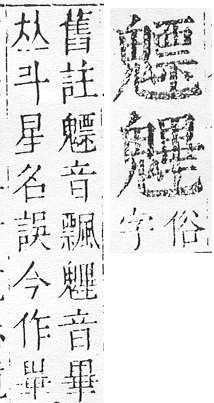 魒魓
俗
字
舊註魒音飄魓音畢
𠀤斗星名誤今作畢